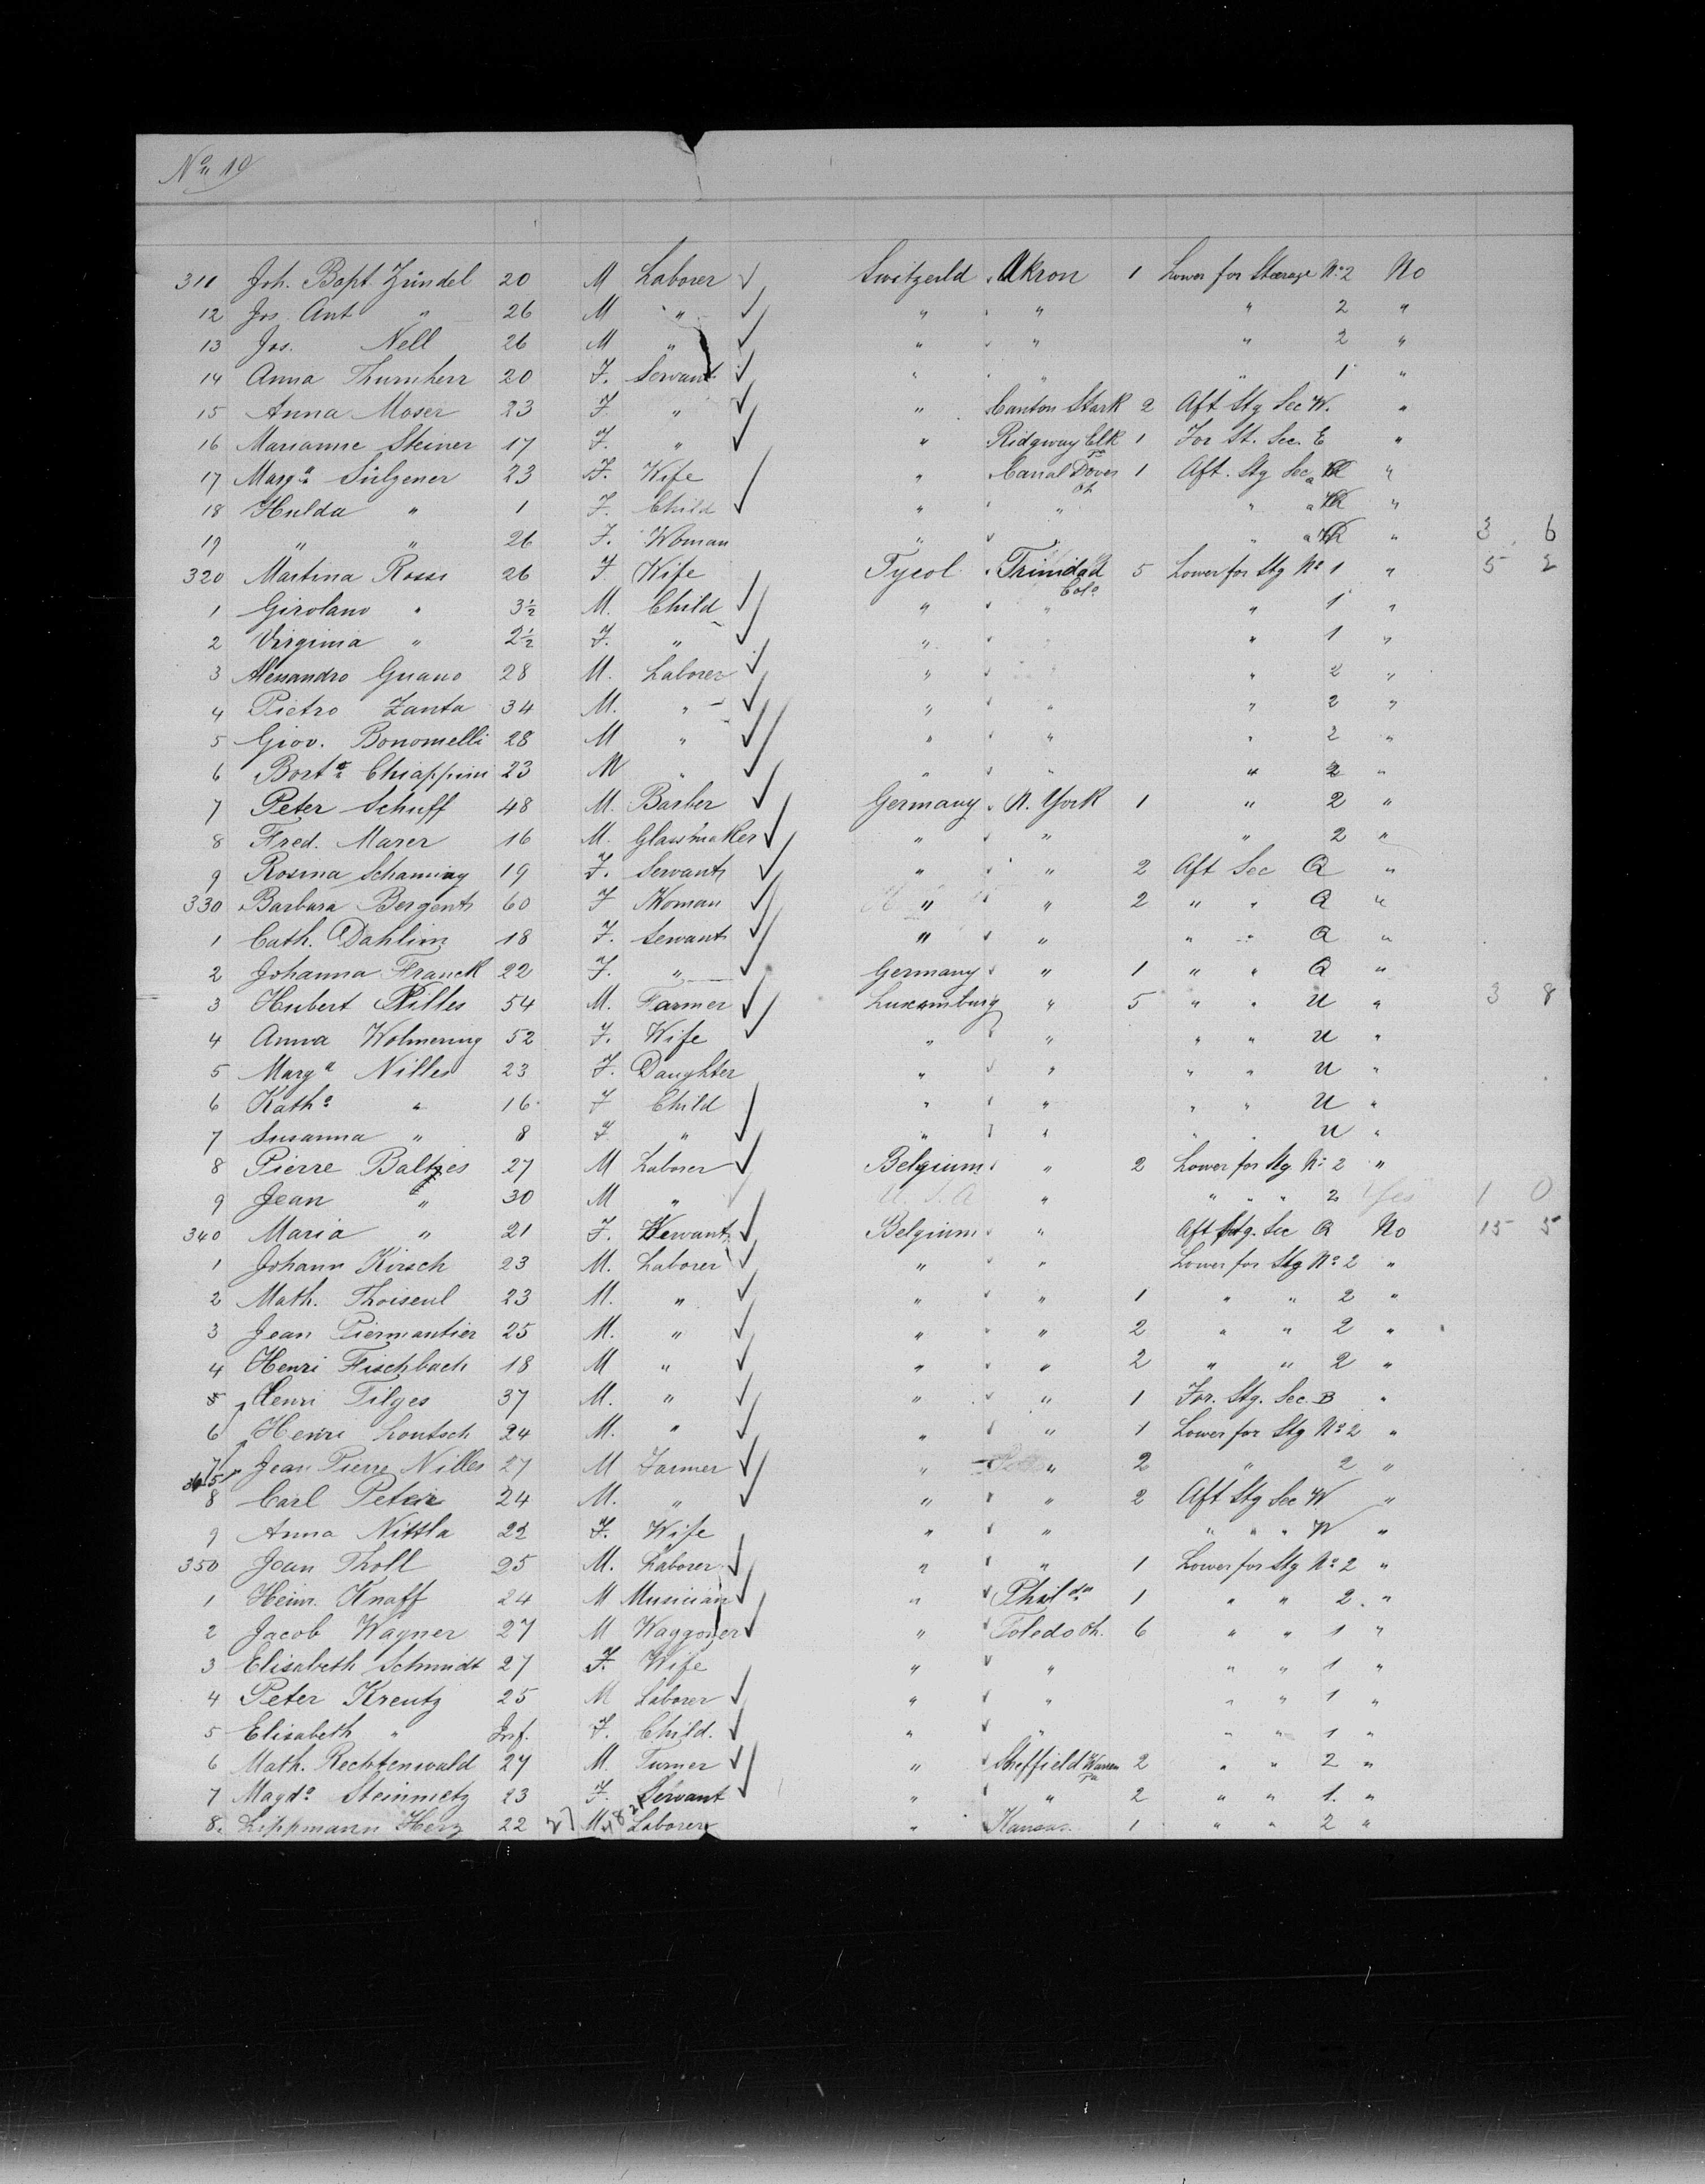 No. 10
311 Joh. Bapt. Zündel 20 M Laborer Switzerld Akron 1 Lower for Steerage No. 2 No
12 Jos. Ant " 26 M " " " " 2 "
13 Jos. Nell 26 M " " " " 2 "
14 Anna Thurnherr 20 F. Servant " " " 1 "
15 Anna Moser 23 F " " Canton Stark 2 Aft Stg Sec W. "
16 Marianne Steiner 17 F. " " Ridgway Elk Pa 1 For St. Sec. E "
17 Marga Sülzener 23 F. Wife " Canal Dover Oh 1 Aft. Stg Sec "
18 Hulda " 1 F. Child " " " "
19 " " 26 F. Woman " " " 3 6
320 Martina Rossi 26 F Wife Tyrol Trinidad Colo 5 Lower for Stg No 1 " 5 2
1 Girolano " 3½ M. Child " " " 1 "
2 Virginia " 2½ F. " " " 1 "
3 Alessandro Guano 28 M. Laborer " " 2 "
4 Pietro Zanta 34 M. " " " " 2 "
5 Giov. Bonomelli 28 M " " " " 2 "
6 Borta Chiappini 23 M " " " " 2 "
7 Peter Schuff 48 M. Barber Germany N. York 1 " 2 "
8 Fred. Marer 16 M. Glassmaker " " " 2 "
9 Rosina Schaming 19 F. Servant " " 2 Aft Sec Q "
330 Barbara Bergent 60 F Woman " " 2 " " Q "
1 Cath. Dahlim 18 F. Servant " " " " Q "
2 Johanna Franck 22 F. " Germany " 1 " " Q "
3 Hubert Nilles 54 M. Farmer Luxemburg " 5 " " U " 3 8
4 Anna Wolmering 52 F. Wife " " " " U "
5 Marga Nilles 23 F. Daughter " " " " U "
6 Katha " 16 F Child " " " " U "
7 Susanna " 8 F " " " " " U "
8 Pierre Baltzes 27 M Laborer Belgium " 2 Lower for Stg No 2 "
9 Jean " 30 M " U. S. A " " " " 2 Yes 1 0
340 Maria " 21 F. Servant Belgium " Aft Stg. Sec Q No 15 5
1 Johann Kirsch 23 M. Laborer " " Lower for Stg No 2 "
2 Math. Thoiseul 23 M. " " " 1 " " 2 "
3 Jean Piermantier 25 M. " " " 2 " " 2 "
4 Henri Fischbach 18 M " " " 2 " " 2 "
5 Henri Tilges 37 M. " " " 1 For. Stg. Sec. B "
6 Henri Loutsch 24 M. " " " 1 Lower for Stg No 2 "
7 Jean Pierre Nilles 27 M Farmer " " 2 " 2 "
8 Carl Peter 24 M. " " " 2 Aft Stg Sec W "
9 Anna Nittla 22 F. Wife " " " " " W "
350 Jean Tholl 25 M. Laborer " " 1 Lower for Stg No 2 "
1 Heinr. Knaff 24 M Musician " Philda 1 " " 2. "
2 Jacob Wagner 27 M Waggoner " Toledo Oh. 6 " " 1 "
3 Elisabeth Schmidt 27 F. Wife " " " " 1 "
4 Peter Kreutz 25 M Laborer " " " " 1 "
5 Elisabeth " Inf. F. Child. " " " " 1 "
6 Math. Rechtenwald 27 M. Turner " Sheffield Warren Pa 2 " " 2 "
7 Magda Steinmetz 23 F. Servant " " 2 " " 1. "
8. Lippmann Herz 22 M. Laborer " Kansas. 1 " " 2 "